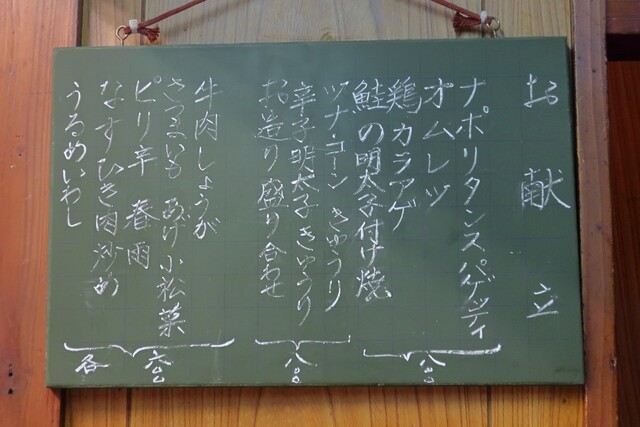 お献立
ナポリタンスパゲッティ
オムレツ
鶏カラアゲ
鮭の明太子付け焼
ツナ・コーン きゅうり
辛子明太子きゅうり
お造り盛り合わせ
牛肉しょうが
さつまいも あげ 小松菜
ピリ辛 春雨
なすひき肉炒め
うるめいわし
八〇
各 六〇